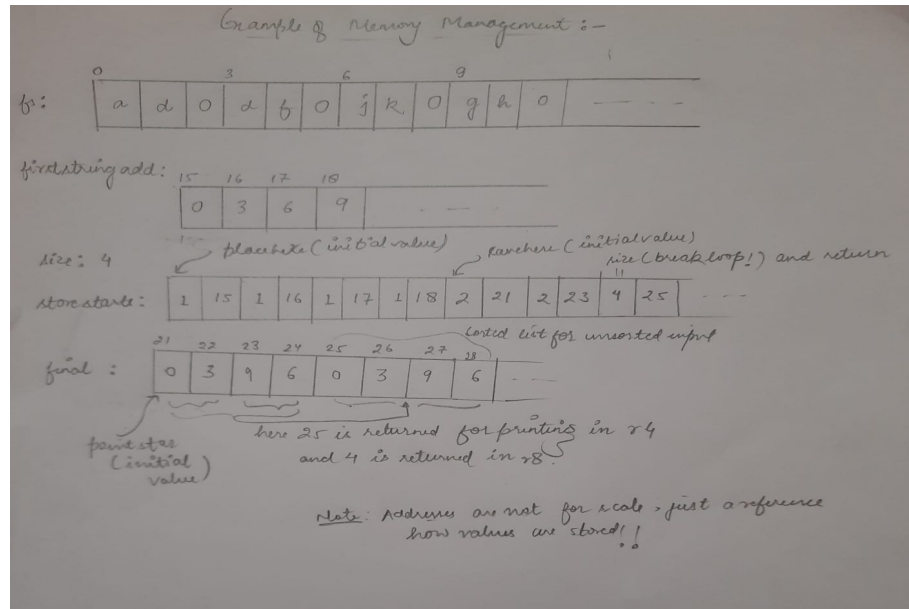 Example of Memory Management :-
0 3 6 9
fs: a d 0 d f 0 j k 0 g h 0 - - - -
firststring add: 15 16 17 18
0 3 6 9 - - -
placehere (initial value)
ranhere (initial value)
size: 4
size (break loop!) and return
storestarts: 1 15 1 16 1 17 1 18 2 21 2 23 4 25 - - -
sorted list for unsorted input
21 22 23 24 25 26 27 28
final : 0 3 9 6 0 3 9 6 - - -
here 25 is returned for printing in r4
and 4 is returned in r8.
(initial
value)
Note: Addresses are not for scale, just a reference
how values are stored!!